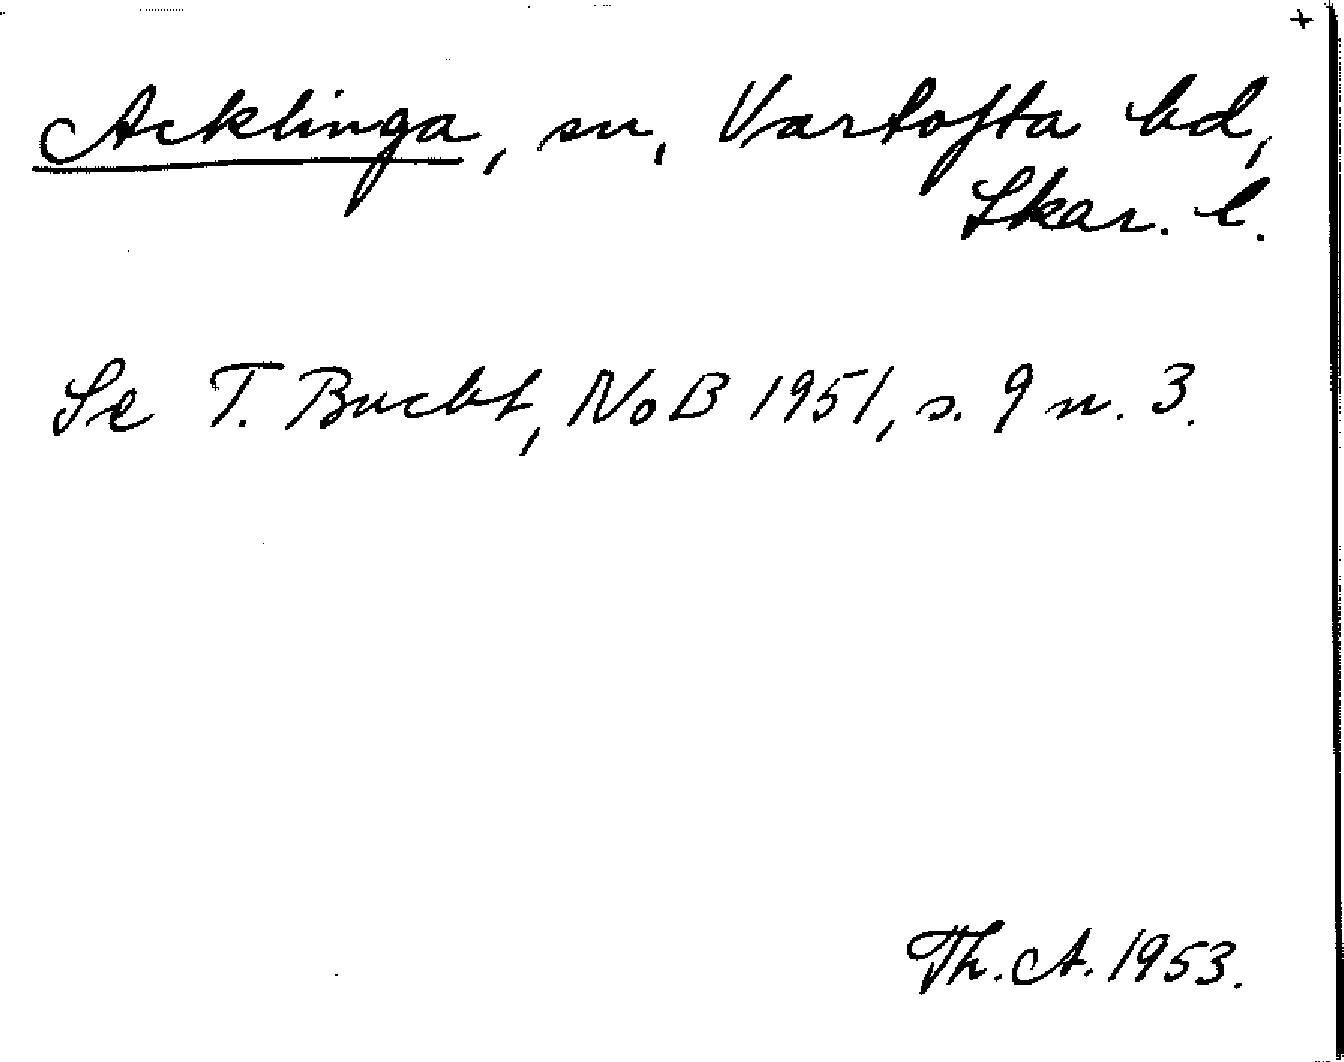 +
Acklinga, sn, Vartofta hd,
Skar. l.
Se T. Bucht, NoB 1951, s. 9 n. 3.
Th. A. 1953.